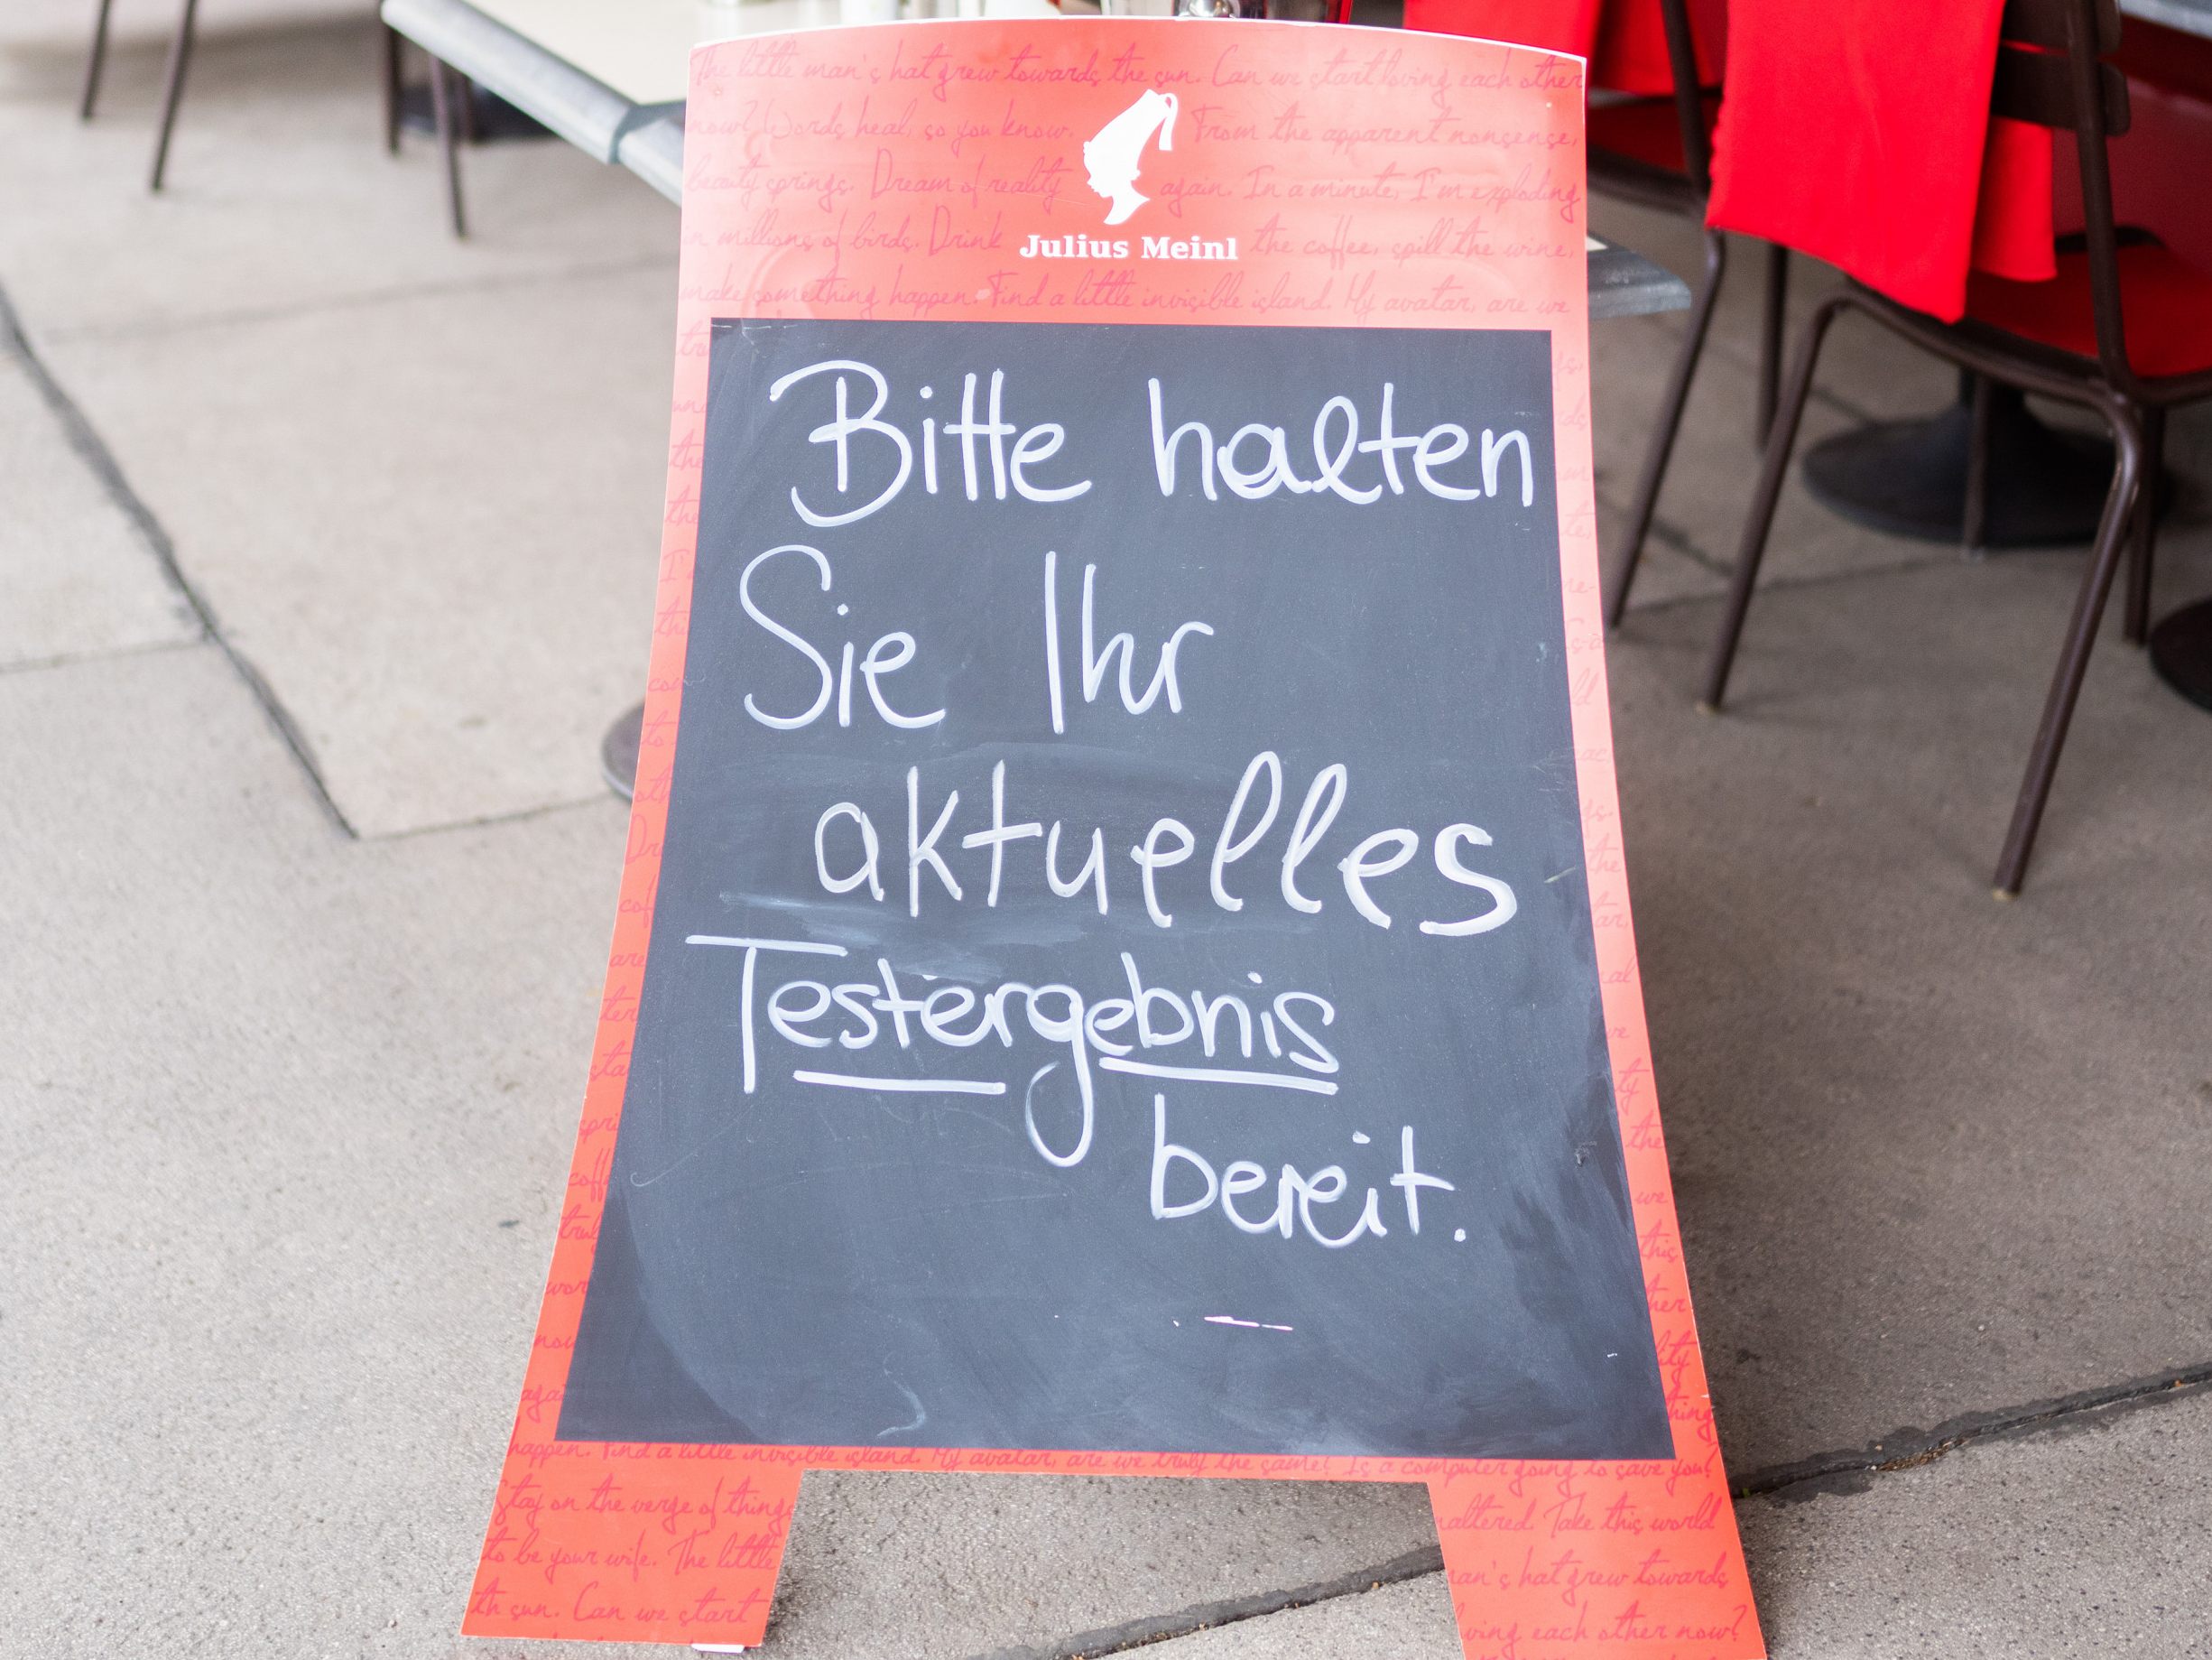 the little man's hat grew towards the sun. Can we start loving each other
now? Words heal, so you know. From the apparent nonsense,
beauty springs. Dream of reality again. In a minute, I'm exploding
in millions of birds. Drink the coffee, spill the wine,
Julius Meinl
make something happen. Find a little invisible island. My avatar, are we
Bitte halten
Sie Ihr
aktuelles
Testergebnis
bereit.
happen. Find a little invisible island. My avatar, are we truly the same? Is a computer going to save you?
Stay on the verge of things
altered. Take this world
to be your wife. The little
man's hat grew towards
th sun. Can we start
loving each other now?